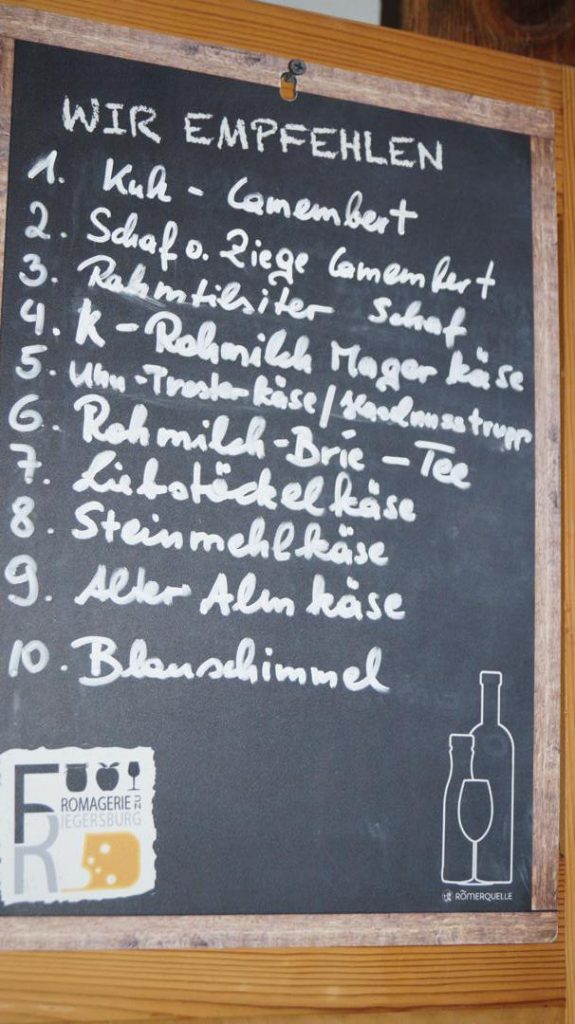 WIR EMPFEHLEN
1. Kuh - Camembert
2. Schaf o. Ziege Camembert
3. Rahmtilsiter Schaf
4. K - Rohmilch Mager käse
5. Uhu-Tresterkäse/
6. Rohmilch-Brie - Tee
7. Liebstöckelkäse
8. Steinmehlkäse
9. Alter Alm käse
10. Blauschimmel
FROMAGERIE ZU
RIEGERSBURG
RÖMERQUELLE